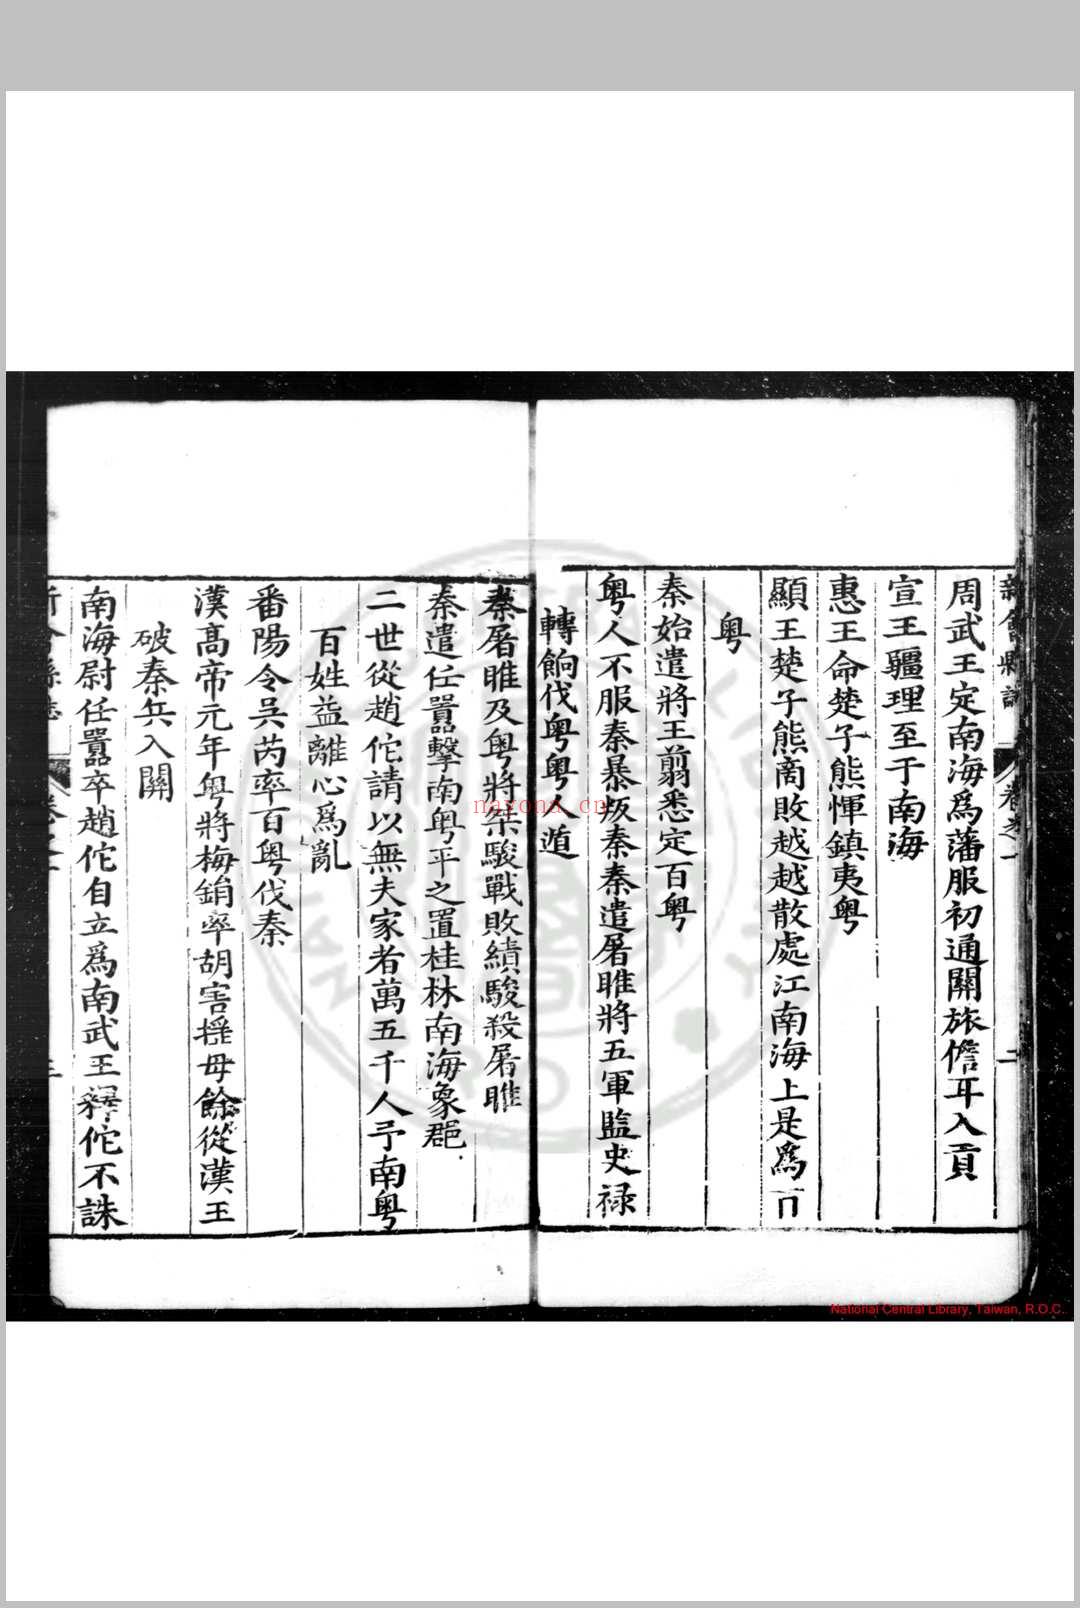 新會縣誌 卷之一 二
周武王定南海爲藩服初通關旅儋耳入貢
宣王疆理至于南海
惠王命楚子熊惲鎮夷粤
顯王楚子熊商敗越越散處江南海上是爲百
粤
秦始遣將王翦悉定百粤
粤人不服秦暴叛秦秦遣屠睢將五軍監史禄
轉餉伐粤粤人遁
秦屠睢及粤將桀駿戰敗績駿殺屠睢
秦遣任囂擊南粤平之置桂林南海象郡
二世從趙佗請以無夫家者萬五千人予南粤
百姓益離心爲亂
番陽令吴芮率百粤伐秦
漢高帝元年粤將梅鋗率胡害摇毋餘從漢王
破秦兵入關
南海尉任囂卒趙佗自立爲南武王釋佗不誅
新會縣誌 卷之一 三
nayona.cn
National Central Library, Taiwan, R.O.C.